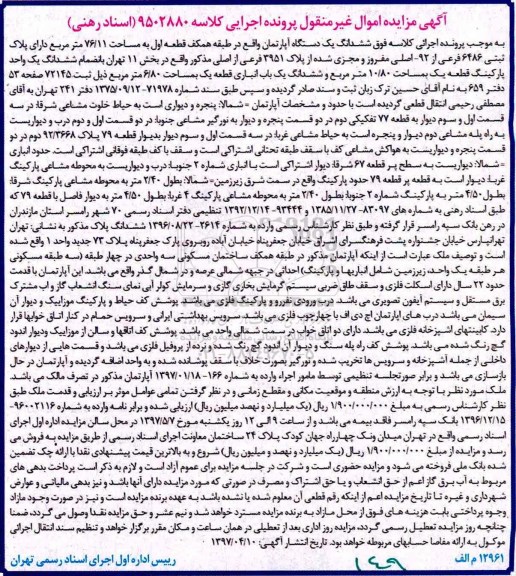 آگهی مزایده اموال غیرمنقول پرونده اجرایی کلاسه ۹۵۰۲۸۸۰ (اسناد رهنی)
به موجب پرونده اجرائی کلاسه فوق ششدانگ یک دستگاه آپارتمان واقع در طبقه همکف قطعه اول به مساحت ۷۶/۱۱ متر مربع دارای پلاک
ثبتی ۶۴۸۶ فرعی از ۹۲-اصلی مفروز و مجزی شده از پلاک ۳۹۵۱ فرعی از اصلی مذکور واقع در بخش ۱۱ تهران بانضمام ششدانگ یک واحد
پارکینگ قطعه یک بمساحت ۱۰/۸۰ متر مربع و ششدانگ یک باب انباری قطعه یک بمساحت ۶/۸۰ متر مربع ذیل ثبت ۷۲۱۴۵ صفحه ۵۳
دفتر ۶۵۹ به نام آقای حسین ترک زبان ثبت و سند صادر گردیده و سپس طبق سند شماره ۷۱۹۷۸-۱۳۷۵/۰۹/۱۲ دفتر ۲۴۱ تهران به آقای
مصطفی رحیمی انتقال قطعی گردیده است با حدود و مشخصات آپارتمان = شمالا: پنجره و دیواری است به حیاط خلوت مشاعی شرقا: در سه
قسمت اول و سوم دیوار به قطعه ۷۷ تفکیکی دوم در دو قسمت پنجره و دیوار به نورگیر مشاعی جنوبا: در دو قسمت اول و دوم درب و دیواریست
به راه پله مشاعی دوم دیوار و پنجره است به حیاط مشاعی غربا: در سه قسمت اول و سوم دیوار بدیوار قطعه ۷۹ پلاک ۹۲/۳۶۶۸ دوم در دو
قسمت پنجره و دیواریست به هواکش مشاعی کف با سقف طبقه تحتانی اشتراکی است و سقف با کف طبقه فوقانی اشتراکی است. حدود انباری
=شمالا: دیواریست به سطح پر قطعه ۶۷ شرقا: دیوار اشتراکی است با انباری شماره ۲ جنوبا: درب و دیواریست به محوطه مشاعی پارکینگ
غربا: دیوار است به قطعه پر قطعه ۷۹ حدود پارکینگ واقع در سمت شرق زیرزمین= شمالا: بطول ۲/۴۰ متر به محوطه مشاعی پارکینگ شرقا:
بطول ۴/۵۰ متر به پارکینگ شماره ۲ جنوبا: بطول ۲/۴۰ متر به محوطه پارکینگ ۴ غربا: بطول ۴/۵۰ متر به دیوار فاصل با قطعه ۷۹ که
طبق اسناد رهنی به شماره های ۸۳۰۹۷-۱۳۸۵/۱۱/۲۷ و ۹۳۴۴۴-۱۳۹۲/۱۲/۱۴ تنظیمی دفتر اسناد رسمی ۷۰ شهر رامسر استان مازندران
در رهن بانک سپه رامسر قرار گرفته و طبق نظر کارشناس رسمی وارده به شماره ۲۶۱۴-۱۳۹۶/۰۸/۲۲ ششدانگ پلاک مذکور به نشانی: تهران
تهرانپارس خیابان جشنواره پشت فرهنگسرای اشراق خیابان جعفرپناه خیابان آباده روبروی پارک جعفرپناه پلاک ۷۳ جدید واحد ۱ واقع شده
است و توصیف ملک عبارت است از اینکه آپارتمان مذکور در طبقه همکف ساختمان مسکونی سه واحدی در چهار طبقه (سه طبقه مسکونی
هر طبقه یک واحد، زیرزمین شامل انباریها و پارکینگ) احداثی در جبهه شمالی عرصه و در شمال گذر واقع می باشد. این آپارتمان با قدمت
حدود ۲۲ سال دارای اسکلت فلزی و سقف طاق ضربی سیستم گرمایش بخاری گازی و سرمایش کولر آبی نمای سنگ انشعاب گاز و آب مشترک
برق مستقل و سیستم آیفون تصویری می باشد. درب ورودی نفررو و پارکینگ فلزی می باشد پوشش کف حیاط و پارکینگ موزاییک و دیوار آن
سیمان می باشد درب های آپارتمان اچ دی اف با چهارچوب فلزی می باشد. سرویس بهداشتی ایرانی و سرویس حمام در کنار اتاق خوابها قرار
دارد. کابینتهای آشپزخانه فلزی می باشد. دارای دو اتاق خواب در سمت شمالی واحد می باشد. پوشش کف اتاقها و سالن از موزاییک و دیوار اندود
گچ رنگ شده می باشد. پوشش کف راه پله سنگ و دیوار آن اندود گچ رنگ شده و نرده از پروفیل فلزی می باشد و قسمت هایی از دیوارهای
داخلی از جمله آشپزخانه و سرویس ها تخریب شده و نورگیر بصورت خلاف با سقف پوشانده شده و به واحد اضافه گردیده و آپارتمان در حال
بازسازی می باشد و برابر صورتجلسه تنظیمی توسط مامور اجراء وارده به شماره ۱۶۶-۱۳۹۷/۰۱/۱۸ آپارتمان مذکور در تصرف مالک می باشد.
ملک مورد نظر با توجه به ارزش منطقه و موقعیت مکانی و مقطع زمانی و در نظر گرفتن تمامی عوامل موثر بر ارزیابی و قدمت ملک طبق
نظر کارشناس رسمی به مبلغ ۱/۹۰۰/۰۰۰/۰۰۰ ریال (یک میلیارد و نهصد میلیون ریال) ارزیابی شده و برابر نامه وارده به شماره ۹۶۰۰۲۱۱۶-
۱۳۹۶/۱۲/۱۵ بانک سپه رامسر فاقد بیمه می باشد و از ساعت ۹ الی ۱۲ روز یکشنبه مورخ ۱۳۹۷/۵/۷ در محل سالن مزایده اداره اول اجرای
اسناد رسمی واقع در تهران میدان ونک چهارراه جهان کودک پلاک ۲۴ ساختمان معاونت اجرای اسناد رسمی از طریق مزایده به فروش می
رسد و مزایده از مبلغ ۱/۹۰۰/۰۰۰/۰۰۰ ریال (یک میلیارد و نهصد و میلیون ریال) شروع و به بالاترین قیمت پیشنهادی نقدا با ارائه چک تضمین
شده بانک ملی فروخته می شود و مزایده حضوری است و شرکت در جلسه مزایده برای عموم آزاد است و لازم به ذکر است پرداخت بدهی های
مربوط به آب برق گاز اعم از حق انشعاب و یا حق اشتراک و مصرف در صورتی که مورد مزایده دارای آنها باشد و نیز بدهی مالیاتی و عوارض
شهرداری و غیره تا تاریخ مزایده اعم از اینکه رقم قطعی آن معلوم شده یا نشده باشد به عهده برنده مزایده است و نیز در صورت وجود مازاد
وجوه پرداختی بابت هزینه های فوق از محل مازاد به برنده مزایده مسترد خواهد شد و نیم عشر و حق مزایده نقدا وصول می گردد، ضمنا
چنانچه روز مزایده تعطیل رسمی گردد، مزایده روز اداری بعد از تعطیلی در همان ساعت و مکان مقرر برگزار خواهد و تنظیم سند انتقال اجرائی
موکول به ارائه مفاصا حسابهای مربوطه خواهد بود. تاریخ انتشار آگهی: ۱۳۹۷/۰۴/۱۰
۱۲۹۶۱ م الف
رییس اداره اول اجرای اسناد رسمی تهران